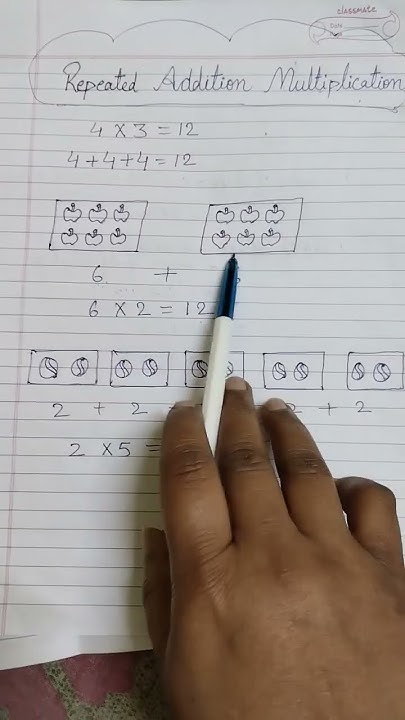 classmate
Date
Repeated Addition Multiplication
4 × 3 = 12
4 + 4 + 4 = 12
6 +
6 × 2 = 12
2 + 2 2 + 2
2 × 5 =